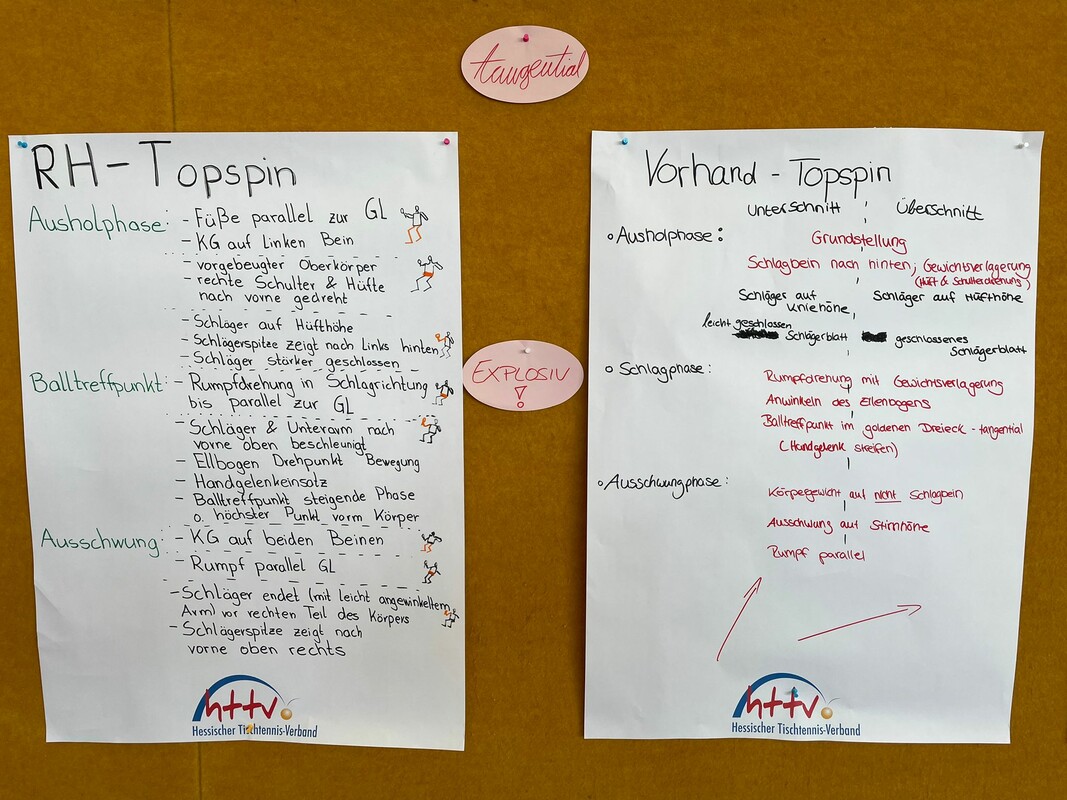 tangential
RH-Topspin
Ausholphase: - Füße parallel zur GL
- KG auf Linken Bein
- vorgebeugter Oberkörper
- rechte Schulter & Hüfte
nach vorne gedreht
- Schläger auf Hüfthöhe
- Schlägerspitze zeigt nach Links hinten
- Schläger stärker geschlossen
Balltreffpunkt: - Rumpfdrehung in Schlagrichtung
bis parallel zur GL
- Schläger & Unterarm nach
vorne oben beschleunigt
- Ellbogen Drehpunkt Bewegung
- Handgelenkeinsatz
- Balltreffpunkt steigende Phase
o. höchster Punkt vorm Körper
Ausschwung: - KG auf beiden Beinen
- Rumpf parallel GL
- Schläger endet (mit leicht angewinkeltem
Arm) vor rechten Teil des Körpers
- Schlägerspitze zeigt nach
vorne oben rechts
httv
Hessischer Tischtennis-Verband
EXPLOSIV
!
Vorhand - Topspin
Unterschnitt Überschnitt
Ausholphase:
Grundstellung
Schlagbein nach hinten; Gewichtsverlagerung
(Hüft & Schulterdrehung)
Schläger auf Kniehöhe, Schläger auf Hüfthöhe
leicht geschlossen
Schlägerblatt geschlossenes
Schlägerblatt
Schlagphase:
Rumpfdrehung mit Gewichtsverlagerung
Anwinkeln des Ellenbogens
Balltreffpunkt im goldenen Dreieck - tangential
(Handgelenk streifen)
Ausschwungphase:
Körpergewicht auf nicht Schlagbein
Ausschwung auf Stirnhöhe
Rumpf parallel
httv
Hessischer Tischtennis-Verband